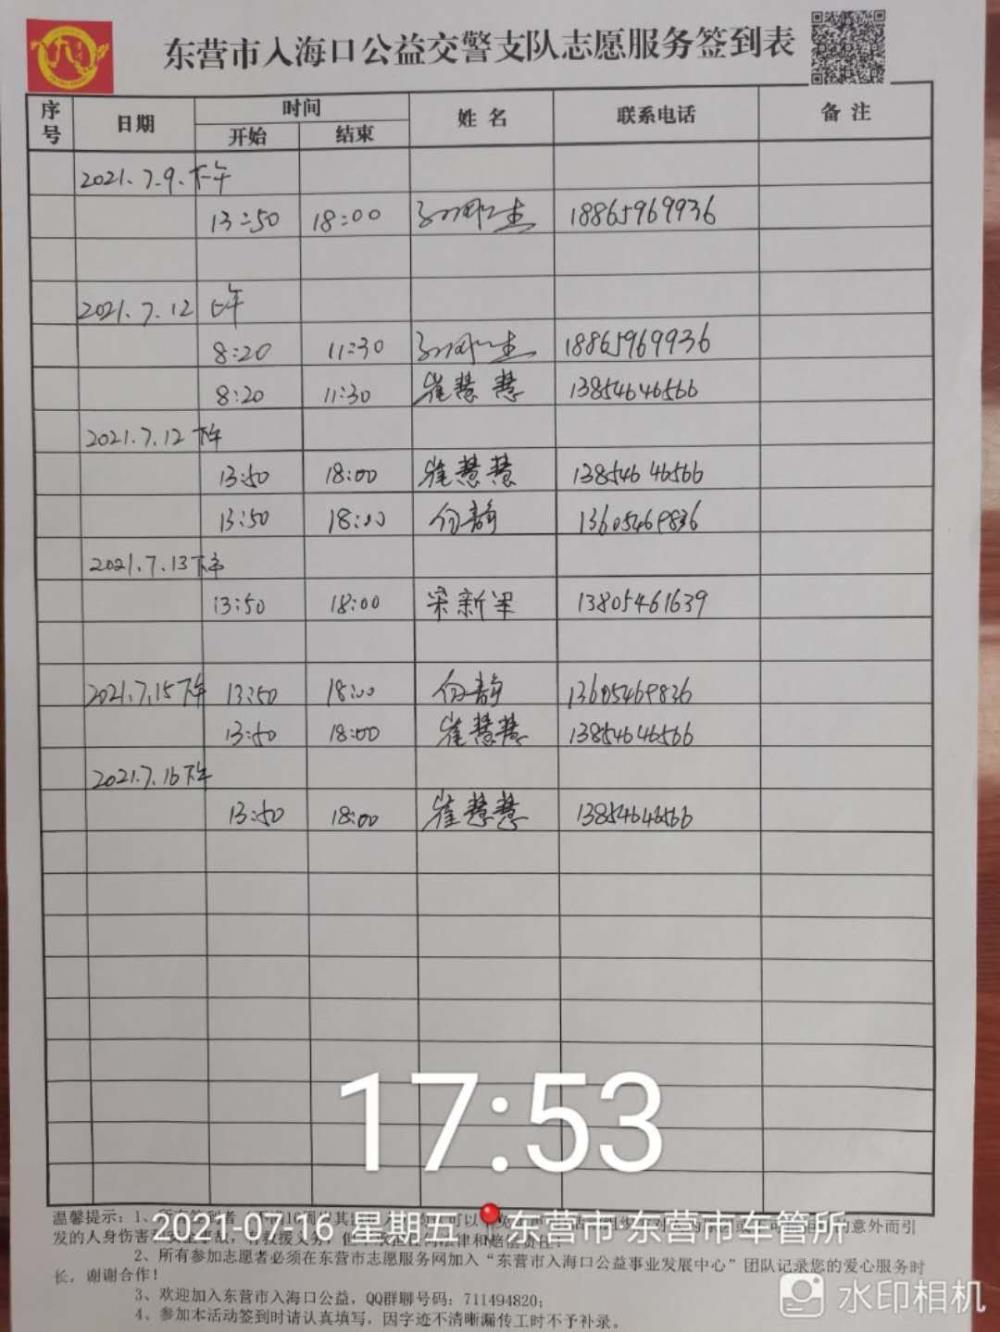 东营市入海口公益交警支队志愿服务签到表
序号 日期 时间 姓 名 联系电话 备 注
开始 结束
2021.7.9.下午
13:50 18:00 18865969936
2021.7.12 上午
8:20 11:30 18865969936
8:20 11:30 崔慧慧 13854646566
2021.7.12 下午
13:50 18:00 崔慧慧 13854646566
13:50 18:00 静 13605469836
2021.7.13下午
13:50 18:00 梁新军 13805461639
2021.7.15下午 13:50 18:00 静 13605469836
13:50 18:00 崔慧慧 13854646566
2021.7.16下午
13:50 18:00 崔慧慧 13854646566
17:53
温馨提示：1、
2021-07-16 星期五 东营市·东营市车管所
的意外而引
发的人身伤害
2、所有参加志愿者必须在东营市志愿服务网加入“东营市入海口公益事业发展中心”团队记录您的爱心服务时
长，谢谢合作！
3、欢迎加入东营市入海口公益，QQ群聊号码：711494820；
4、参加本活动签到时请认真填写，因字迹不清晰漏传工时不予补录。
水印相机